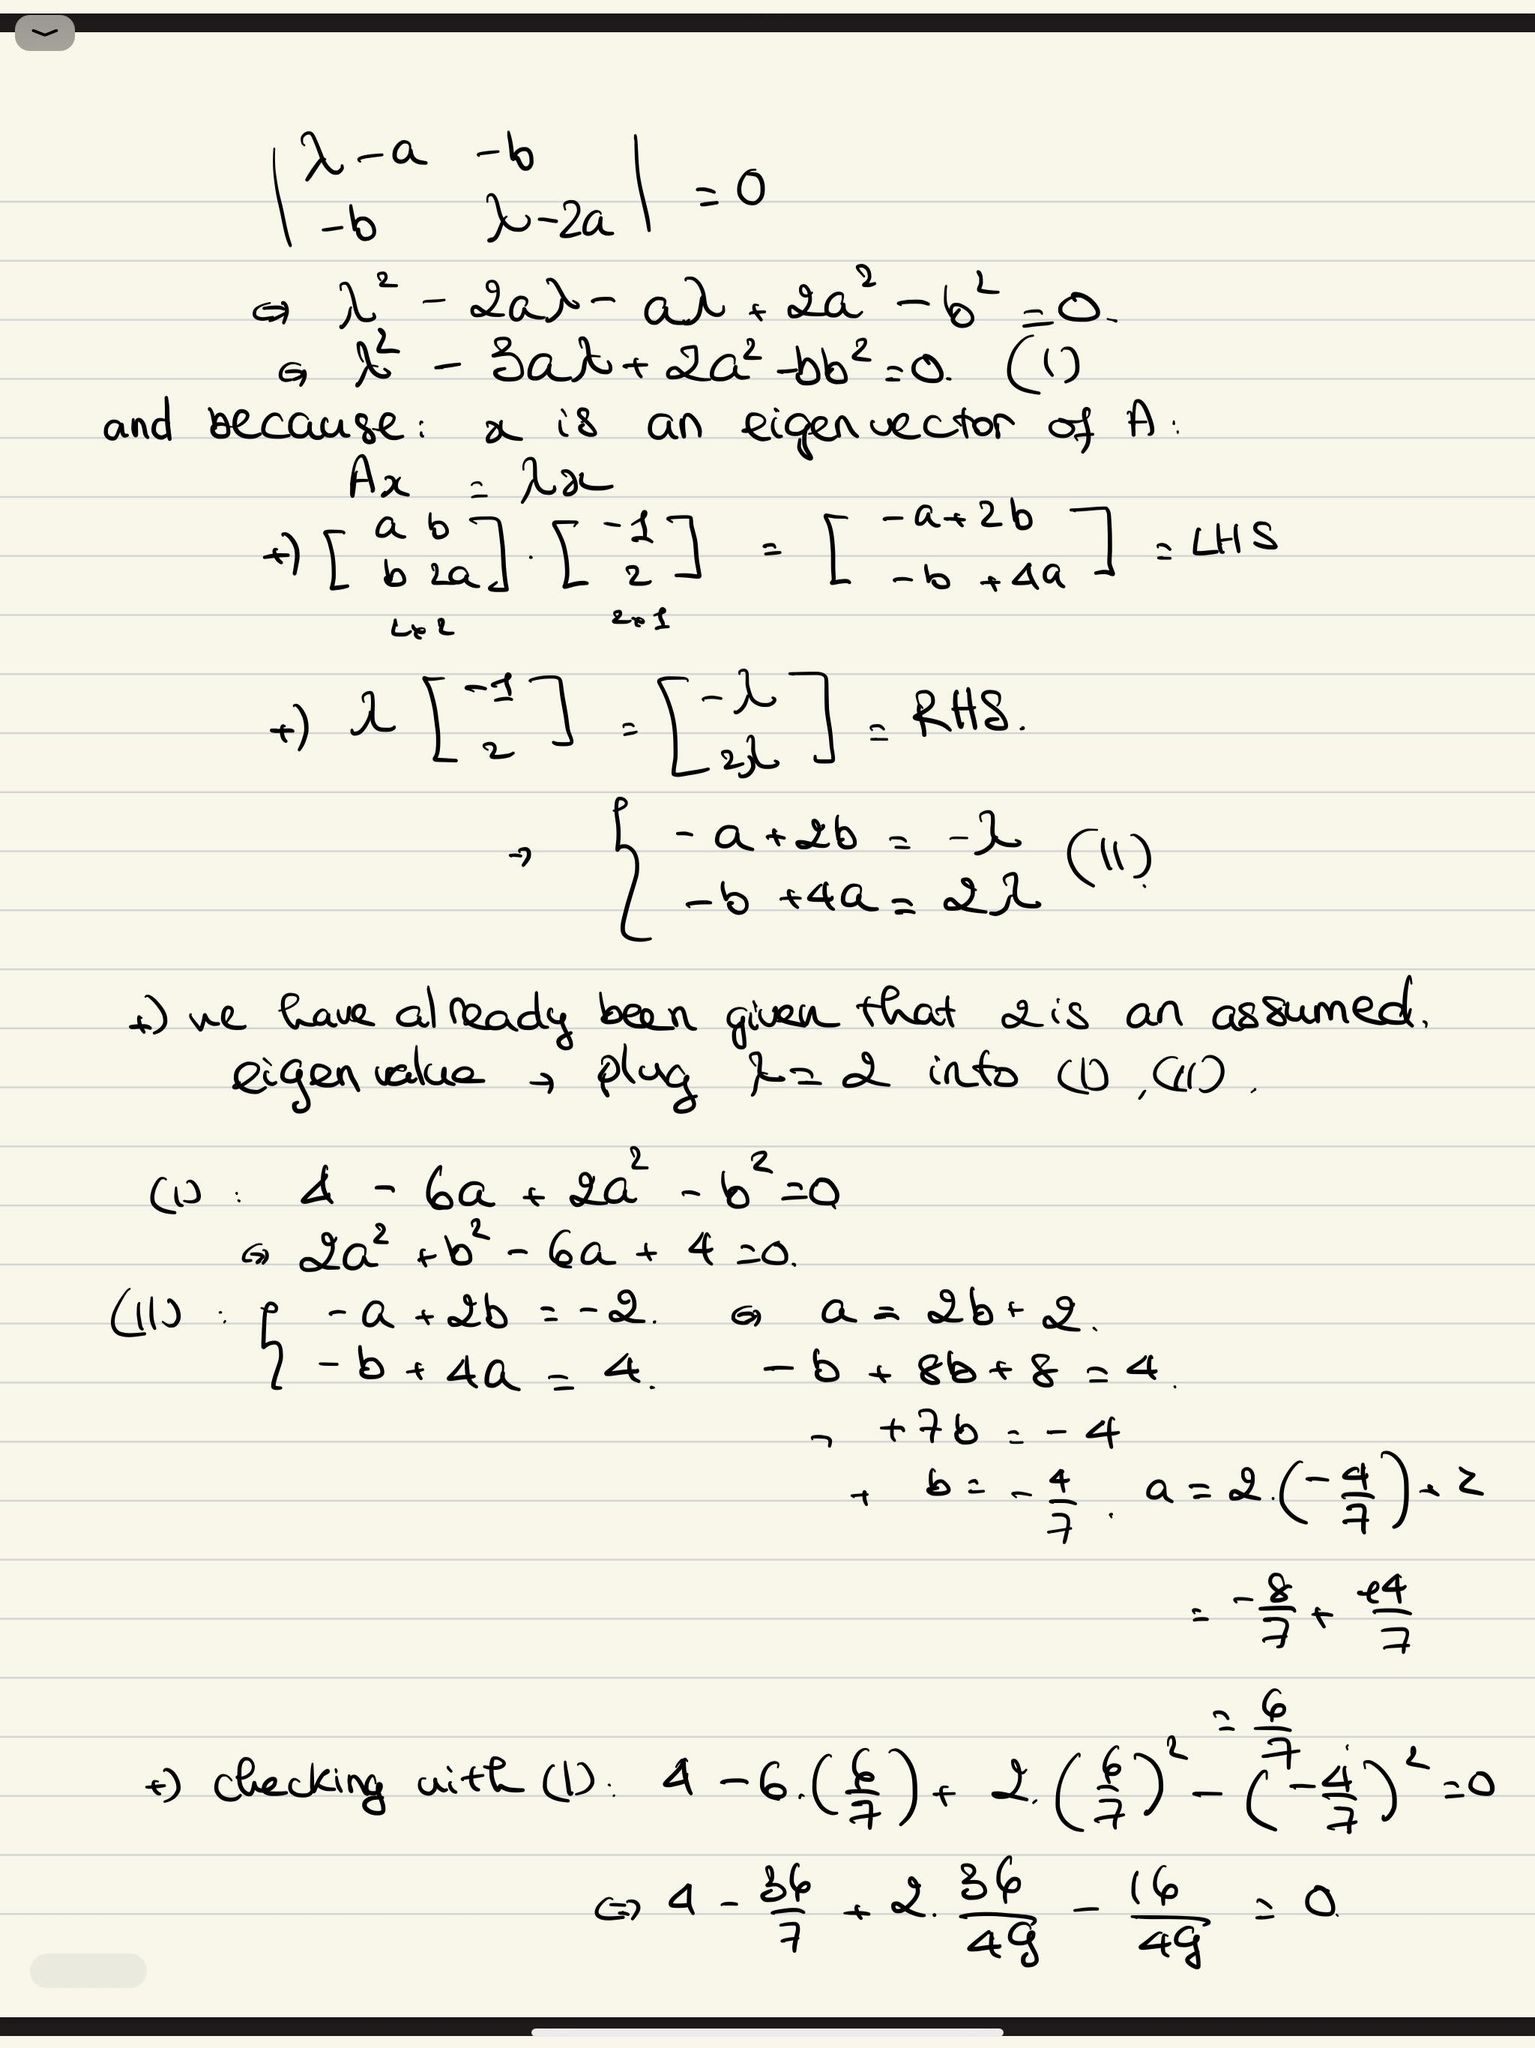 | λ-a -b |
| -b λ-2a | = 0
⇔ λ² - 2aλ - aλ + 2a² - b² = 0.
⇔ λ² - 3aλ + 2a² - bb² = 0. (I)
and because: x is an eigenvector of A:
Ax = λx
+) [ a b ; b 2a ] . [ -1 ; 2 ] = [ -a+2b ; -b+4a ] = LHS
2×2 2×1
+) λ [ -1 ; 2 ] = [ -λ ; 2λ ] = RHS.
→ { -a+2b = -λ
-b+4a = 2λ (II)
+) we have already been given that 2 is an assumed.
eigenvalue → plug λ=2 into (I), (II).
(I): 4 - 6a + 2a² - b² = 0
⇔ 2a² + b² - 6a + 4 = 0.
(II): { -a + 2b = -2. ⇔ a = 2b + 2.
-b + 4a = 4. -b + 8b + 8 = 4.
→ +7b = -4
→ b = -4/7. a = 2.(-4/7) + 2
= -8/7 + 14/7
= 6/7
+) checking with (I): 4 - 6.(6/7) + 2.(6/7)² - (-4/7)² = 0
⇔ 4 - 36/7 + 2. 36/49 - 16/49 = 0.